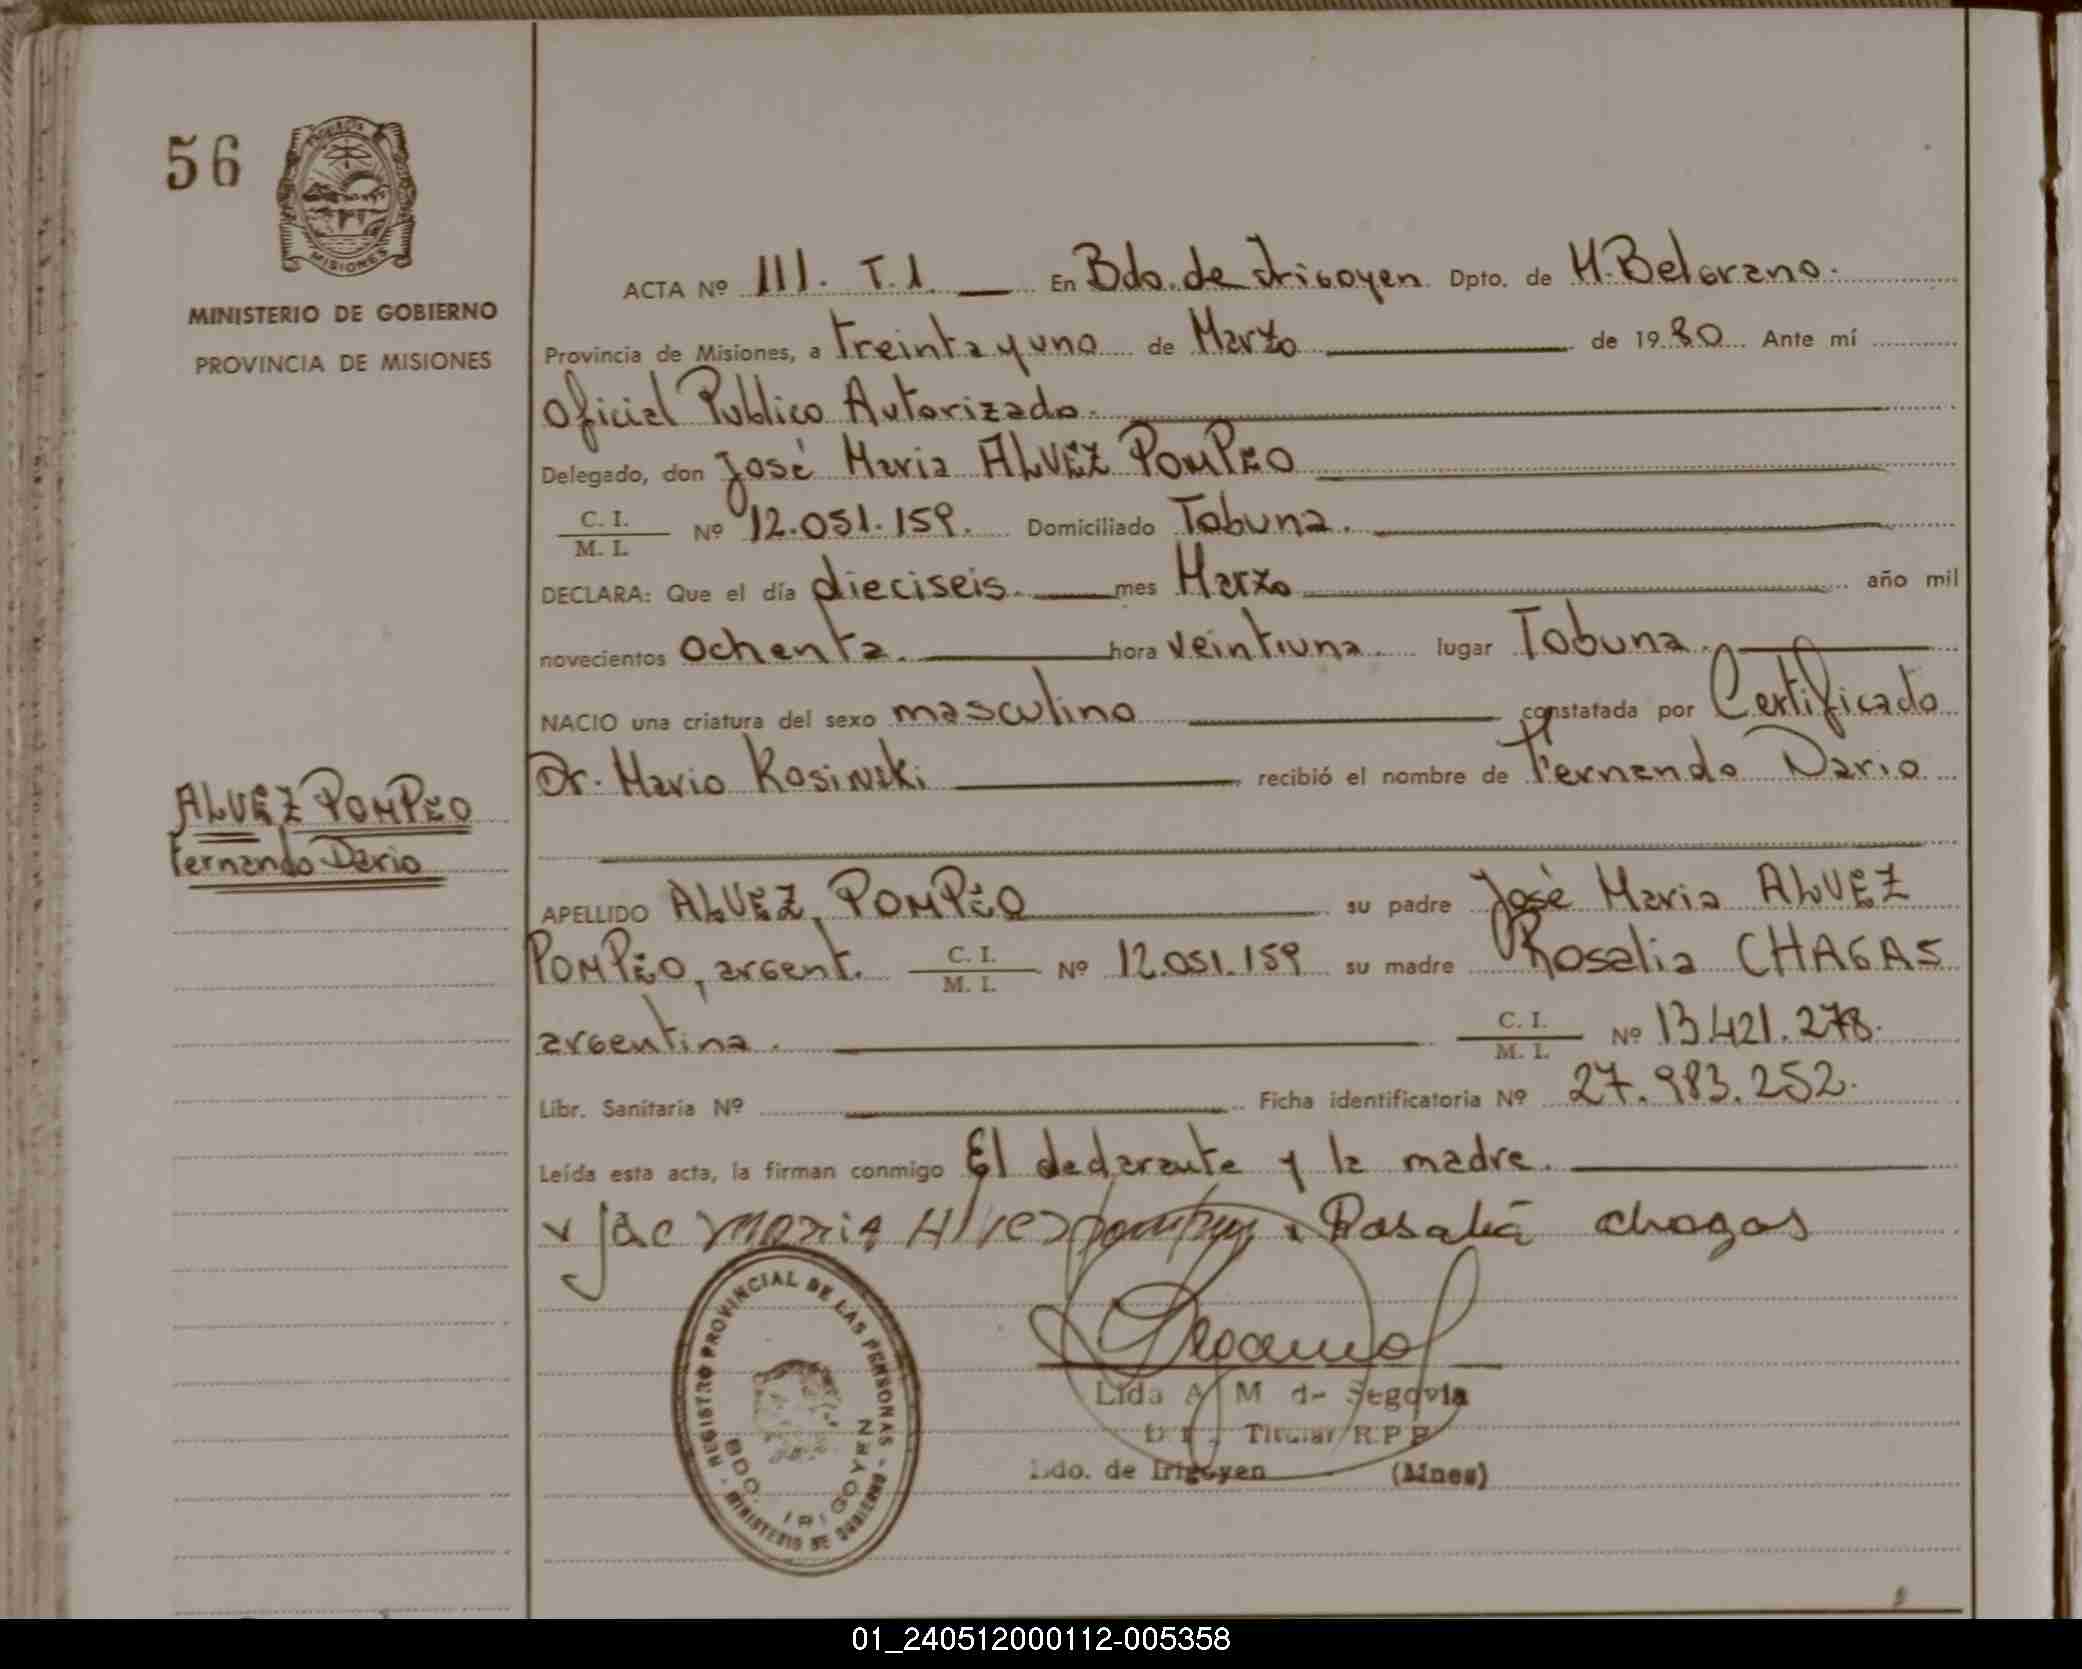 56
MISIONES
MINISTERIO DE GOBIERNO
PROVINCIA DE MISIONES
ACTA Nº 111. T.1 En Bdo. de Irigoyen Dpto. de M. Belgrano.
Provincia de Misiones, a treinta y uno de Marzo de 1980 Ante mí
Oficial Publico Autorizado.
Delegado, don José Maria ALVEZ POMPEO
C. I.
M. I. Nº 12.051.159. Domiciliado Tobuna.
DECLARA: Que el día dieciseis. mes Marzo año mil
novecientos ochenta. hora veintiuna lugar Tobuna.
NACIO una criatura del sexo masculino constatada por Certificado
Dr. Mario Kosinski recibió el nombre de Fernando Dario
ALVEZ POMPEO
Fernando Dario
APELLIDO ALVEZ POMPEO su padre José Maria ALVEZ
POMPEO, argent. C. I.
M. I. Nº 12.051.159 su madre Rosalia CHAGAS
argentina. C. I.
M. I. Nº 13.421.278.
Libr. Sanitaria Nº Ficha identificatoria Nº 27.983.252.
Leída esta acta, la firman conmigo El declarante y la madre.
Maria Rosalia chagas
REGISTRO PROVINCIAL DE LAS PERSONAS - MINISTERIO DE GOBIERNO -
BDO. IRIGOYEN
Lida A M de Segovia
Titular R P P
Bdo. de Irigoyen (Mnes)
01_240512000112-005358